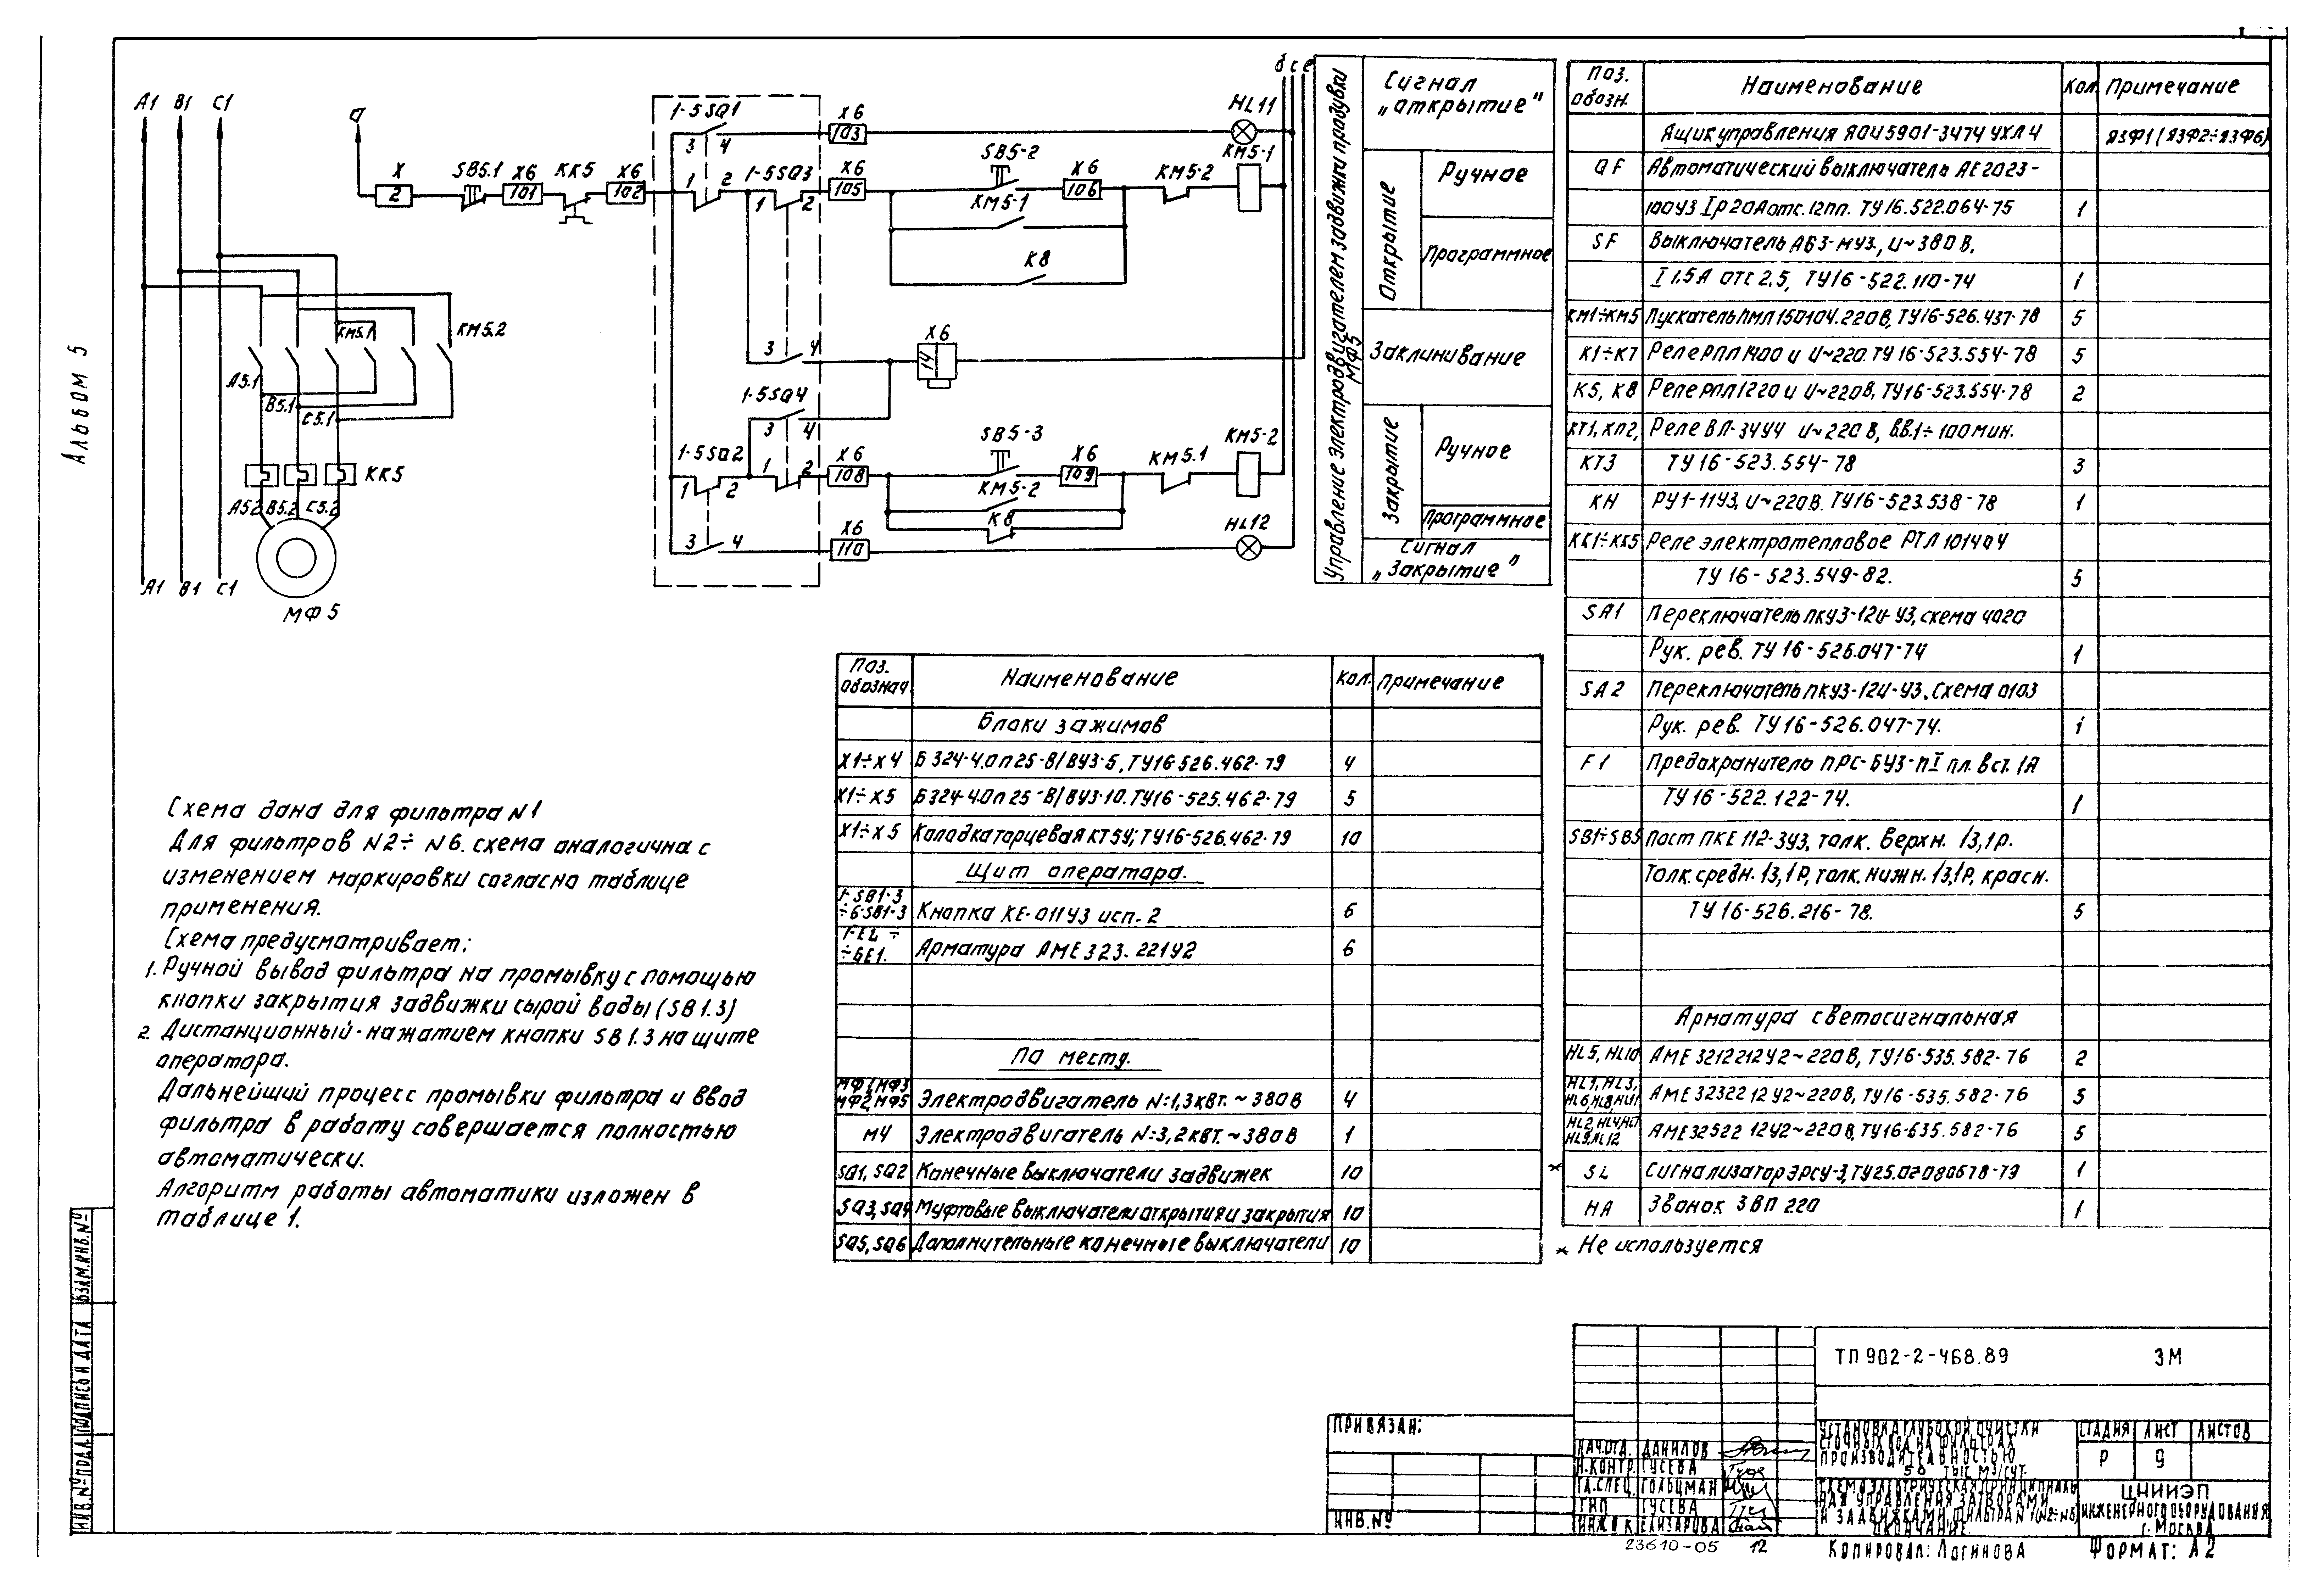 Альбом 5
А1 В1 С1
а
X
2
SB5.1
X6
101
КК5
X6
102
1-5SQ1
3 4
1 2
1-5SQ3
1 2
3 4
1-5SQ4
3 4
1-5SQ2
1 2
1 2
3 4
X6
103
X6
105
SB5-2
X6
106
КМ5-1
К8
КМ5-2
КМ5-1
HL11
б с е
X6
14
X6
108
SB5-3
X6
109
КМ5-2
К8
КМ5.1
КМ5-2
X6
110
HL12
КМ5.1
КМ5.2
А5.1
В5.1
С5.1
КК5
А5.2 В5.2 С5.2
А1 В1 С1
МФ5
Управление электродвигателем задвижки продувки МФ5
Сигнал
„открытие"
Открытие
Ручное
Программное
Заклинивание
Закрытие
Ручное
Программное
Сигнал
„Закрытие"
Поз. обозн. Наименование Кол. Примечание
Ящик управления ЯОУ5901-3474 УХЛ4 ЯЗФ1 (ЯЗФ2÷ЯЗФ6)
QF Автоматический выключатель АЕ2023-
100У3 Iр20А отс.12пп. ТУ16.522.064-75 1
SF Выключатель АБ3-МУ3, U~380В,
I 1.5А отс 2,5, ТУ16-522.110-74 1
КМ1÷КМ5 Пускатель ПМЛ 150104. 220В, ТУ16-526.437-78 5
К1÷К7 Реле РПЛ 1400 и U~220. ТУ16-523.554-78 5
К5, К8 Реле РПЛ1220 и U~220В, ТУ16-523.554-78 2
КТ1, КП2, Реле ВЛ-34У4 U~220В, в.в.1÷100 мин.
КТ3 ТУ16-523.554-78 3
КН РУ1-11У3, U~220В. ТУ16-523.538-78 1
КК1÷КК5 Реле электротепловое РТЛ 101404
ТУ16-523.549-82. 5
SA1 Переключатель ПКУ3-12И-У3, схема 4020
Рук. рев. ТУ16-526.047-74 1
SA2 Переключатель ПКУ3-12И-У3. Схема 0103
Рук. рев. ТУ16-526.047-74. 1
F1 Предохранитель ПРС-6У3-ПI пл. вст. 1А
ТУ16-522.122-74. 1
SB1÷SB5 Пост ПКЕ 112-3У3, толк. верхн. 1з,1р.
Толк. средн. 1з,1р, толк. нижн. 1з,1р, красн.
ТУ16-526.216-78. 5
Арматура светосигнальная
HL5, HL10 АМЕ 321221 2У2~220В, ТУ16-535.582-76 2
HL1, HL3, HL6, HL8, HL11 АМЕ 32322 12У2~220В, ТУ16-535.582-76 5
HL2, HL4, HL7 HL9, HL12 АМЕ32522 12У2~220В, ТУ16-535.582-76 5
* SL Сигнализатор ЭРСУ-3, ТУ25.02080678-79 1
НА Звонок ЗВП 220 1
* Не используется
Поз. обознач Наименование Кол. Примечание
Блоки зажимов
X1÷X4 Б324-4.0П25-В/ВУ3-5, ТУ16 526.462-79 4
X1÷X5 Б324-4.0П25-В/ВУ3-10. ТУ16-525.462-79 5
X1÷X5 Колодка торцевая КТ5У; ТУ16-526.462-79 10
Щит оператора.
1-SB1-3 ÷6-SB1-3 Кнопка КЕ-011У3 исп. 2 6
1-EL÷ ÷6E1. Арматура АМЕ 323.221У2 6
По месту.
МФ1, МФ3 МФ2, МФ5 Электродвигатель N=1,3квт. ~380В 4
М4 Электродвигатель N=3,2квт. ~380В 1
SQ1, SQ2 Конечные выключатели задвижек 10
SQ3, SQ4 Муфтовые выключатели открытия и закрытия 10
SQ5, SQ6 Дополнительные конечные выключатели 10
Схема дана для фильтра N1
Для фильтров N2÷N6. схема аналогична с
изменением маркировки согласно таблице
применения.
Схема предусматривает:
1. Ручной вывод фильтра на промывку с помощью
кнопки закрытия задвижки сырой воды (SB1.3)
2. Дистанционный-нажатием кнопки SB1.3 на щите
оператора.
Дальнейший процесс промывки фильтра и ввод
фильтра в работу совершается полностью
автоматически.
Алгоритм работы автоматики изложен в
таблице 1.
ИНВ.№ ПОДЛ. ПОДПИСЬ И ДАТА ВЗАМ.ИНВ.№
ПРИВЯЗАН:
ИНВ.№
НАЧ.ОТД. ДАНИЛОВ
Н.КОНТР. ГУСЕВА
ГЛ.СПЕЦ. ГОЛЬЦМАН
ГИП ГУСЕВА
ИНЖ.IIК ЕЛИЗАРОВА
ТП 902-2-468.89 ЭМ
УСТАНОВКА ГЛУБОКОЙ ОЧИСТКИ
СТОЧНЫХ ВОД НА ФИЛЬТРАХ
ПРОИЗВОДИТЕЛЬНОСТЬЮ
50 ТЫС М3/СУТ.
СТАДИЯ ЛИСТ ЛИСТОВ
Р 9
СХЕМА ЭЛЕКТРИЧЕСКАЯ ПРИНЦИПИАЛЬ
НАЯ УПРАВЛЕНИЯ ЗАТВОРАМИ
И ЗАДВИЖКАМИ ФИЛЬТРА N1(N2÷N6)
ОКОНЧАНИЕ.
ЦНИИЭП
ИНЖЕНЕРНОГО ОБОРУДОВАНИЯ
г. МОСКВА
23610-05 12
КОПИРОВАЛ: ЛОГИНОВА
ФОРМАТ: А2